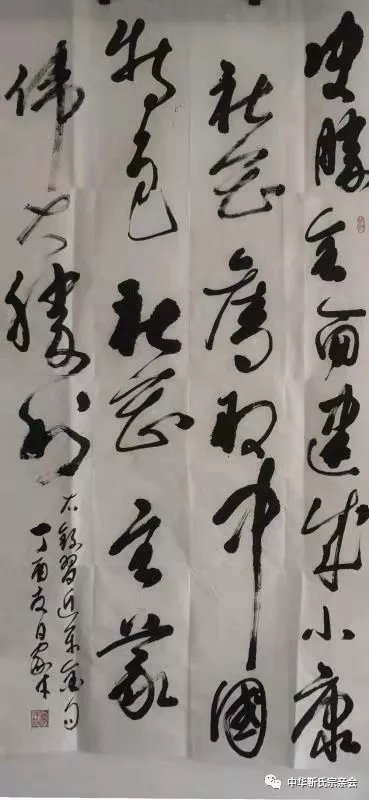 决胜全面建成小康
社会夺取中国
特色社会主义
伟大胜利
右录习近平金句
丁酉友日家本
中华靳氏宗亲会